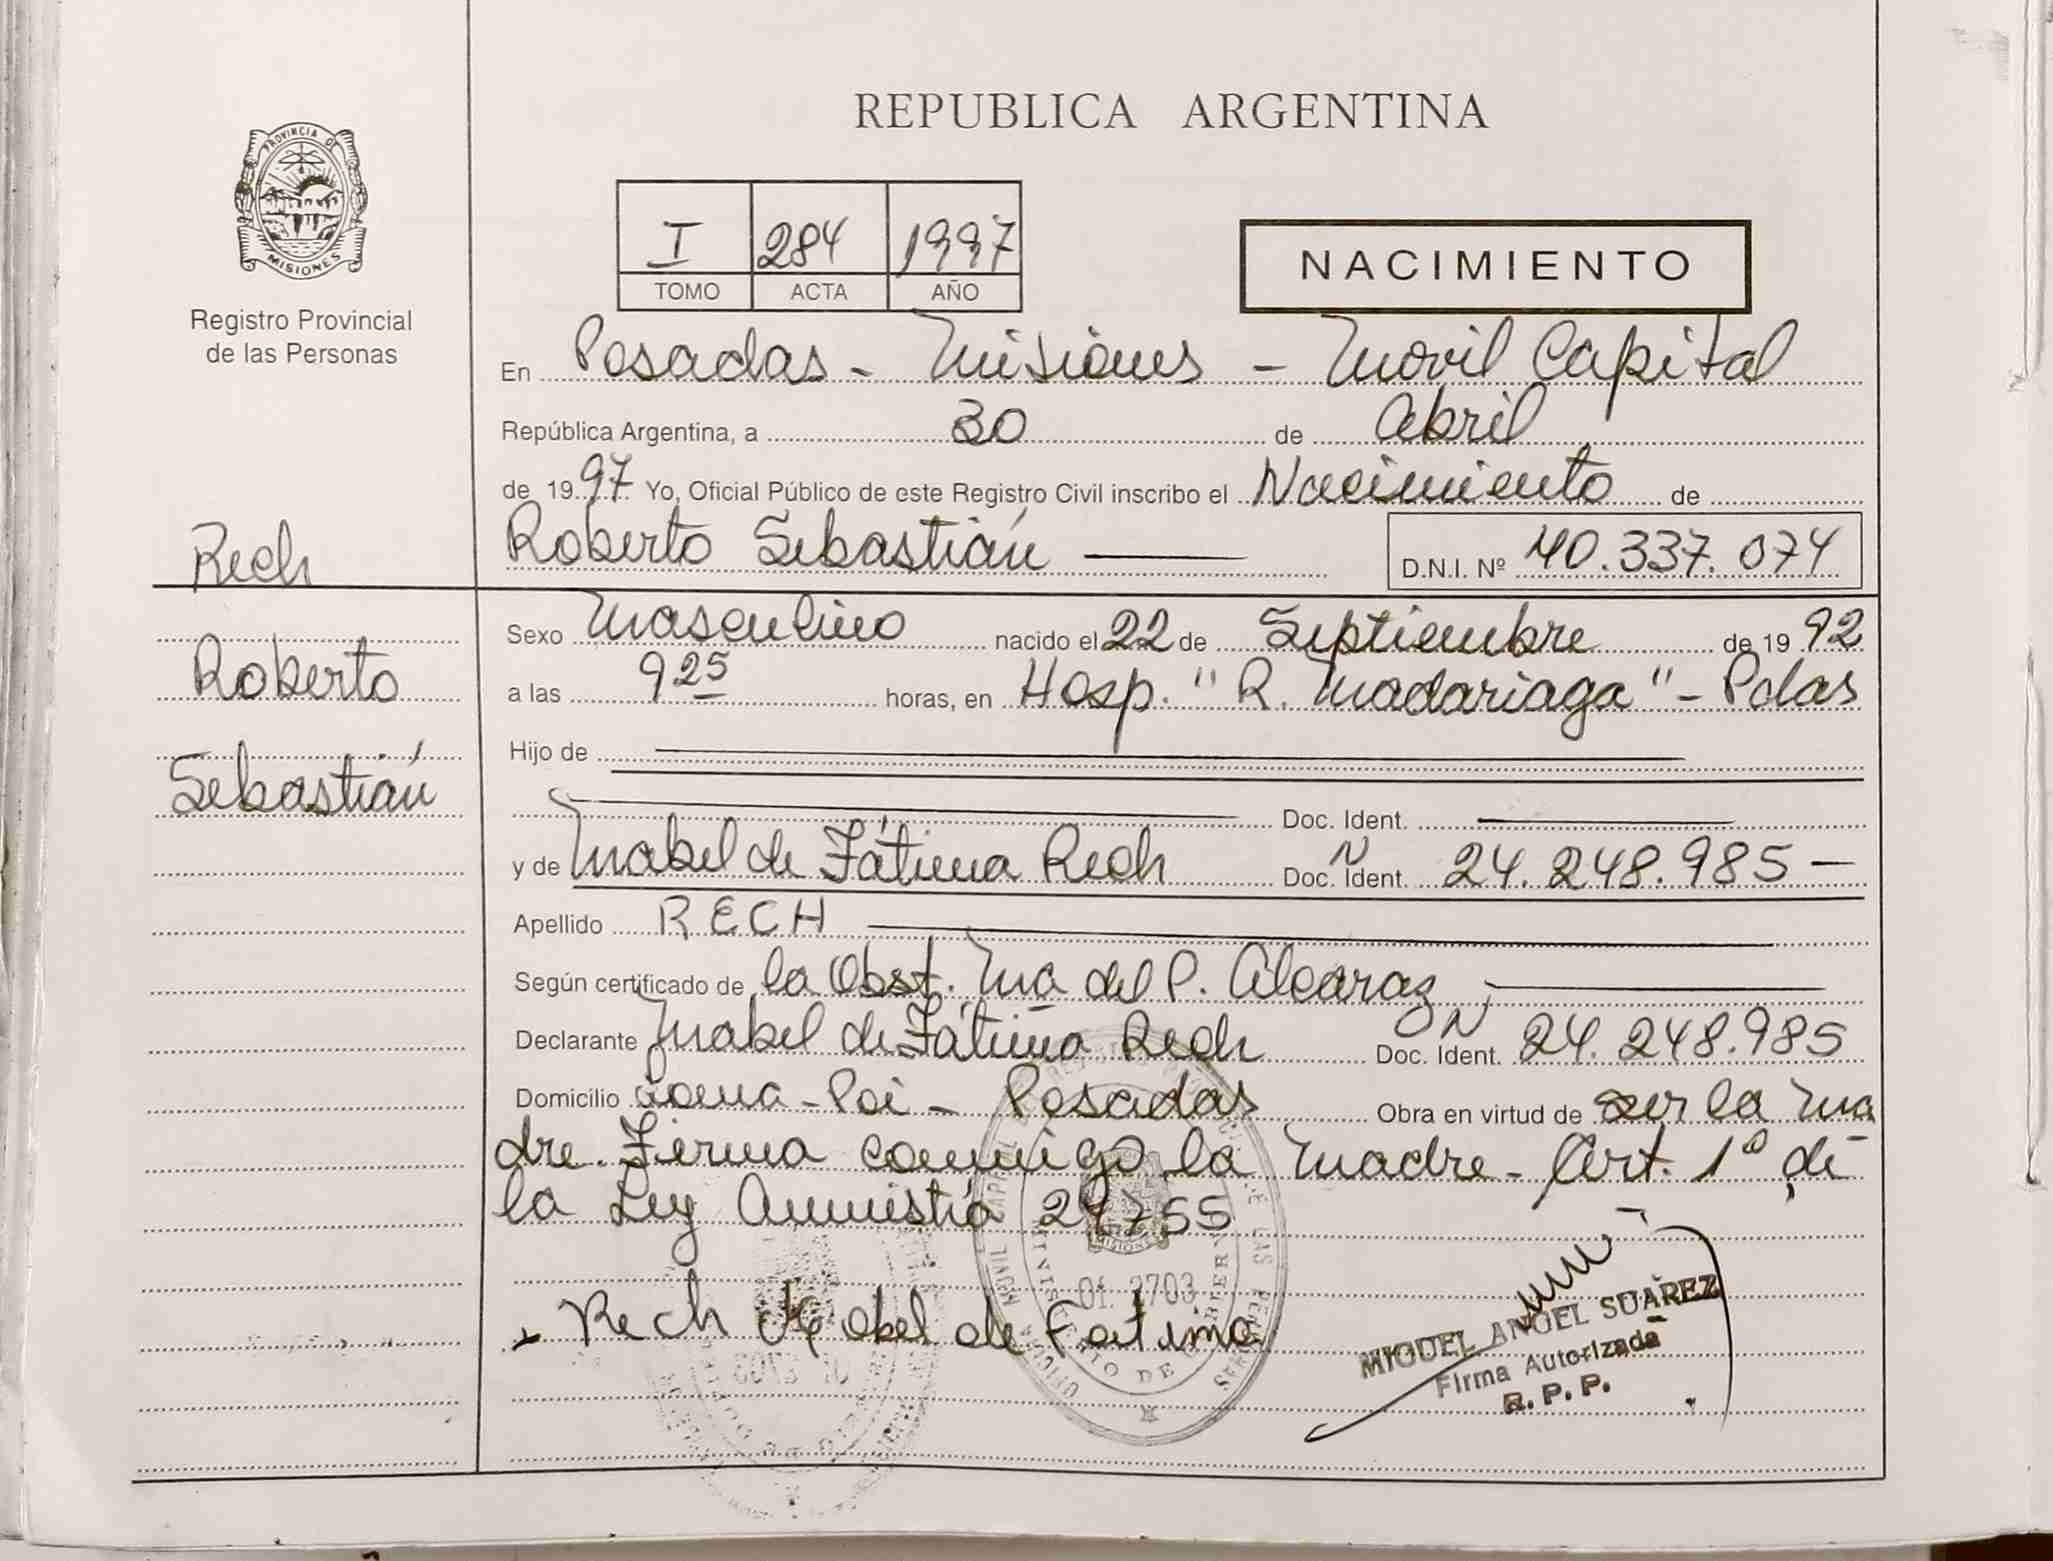 REPUBLICA ARGENTINA
PROVINCIA DE
MISIONES
Registro Provincial
de las Personas
I 284 1997
TOMO ACTA AÑO
NACIMIENTO
En Posadas - Misiones - Movil Capital
República Argentina, a 30 de Abril
de 1997 Yo, Oficial Público de este Registro Civil inscribo el Nacimiento de
Rech
Roberto Sebastián
D.N.I. Nº 40.337.074
Roberto
Sebastián
Sexo Masculino nacido el 22 de Septiembre de 1992
a las 9 25 horas, en Hosp. "R. Madariaga" - Pdas
Hijo de
Doc. Ident.
y de Mabel de Fátima Rech Doc. Ident. 24.248.985 -
Apellido RECH
Según certificado de la Obst. Ma del P. Alcaraz
Declarante Mabel de Fátima Rech Doc. Ident. 24.248.985
Domicilio Posadas Obra en virtud de ser la ma
dre. Firma conmigo la madre - Art. 1º de
la Ley Amnistía 24755
Rech Mabel de Fatima
01 2703
MISIONES
MIGUEL ANGEL SUAREZ
Firma Autorizada
R. P. P.